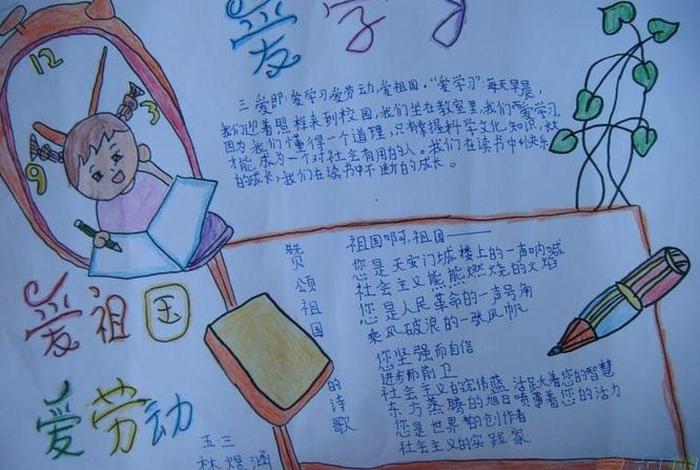 爱学习
12
3
9
三爱即:爱学习,爱劳动,爱祖国。"爱学习"每天早晨,
我们迎着照样来到校园,我们坐在教室里,我们爱学习,
因为我们懂得一个道理,只有掌握科学文化知识,
才能成为一个对社会有用的人。我们在读书中快乐
的成长,我们在读书中不断的成长。
爱祖国
爱劳动
五三
林煜涵
赞颂祖国的诗歌
祖国啊,祖国——
您是天安门城楼上的一声呐喊
社会主义熊熊燃烧的火焰
您是人民革命的一声号角
乘风破浪的一张风帆
您坚强而自信
进步而前卫
社会主义的宏伟蓝
您的智慧
东方蒸腾的旭日喷薄着您的活力
您是世界的创作者
社会主义的实践家